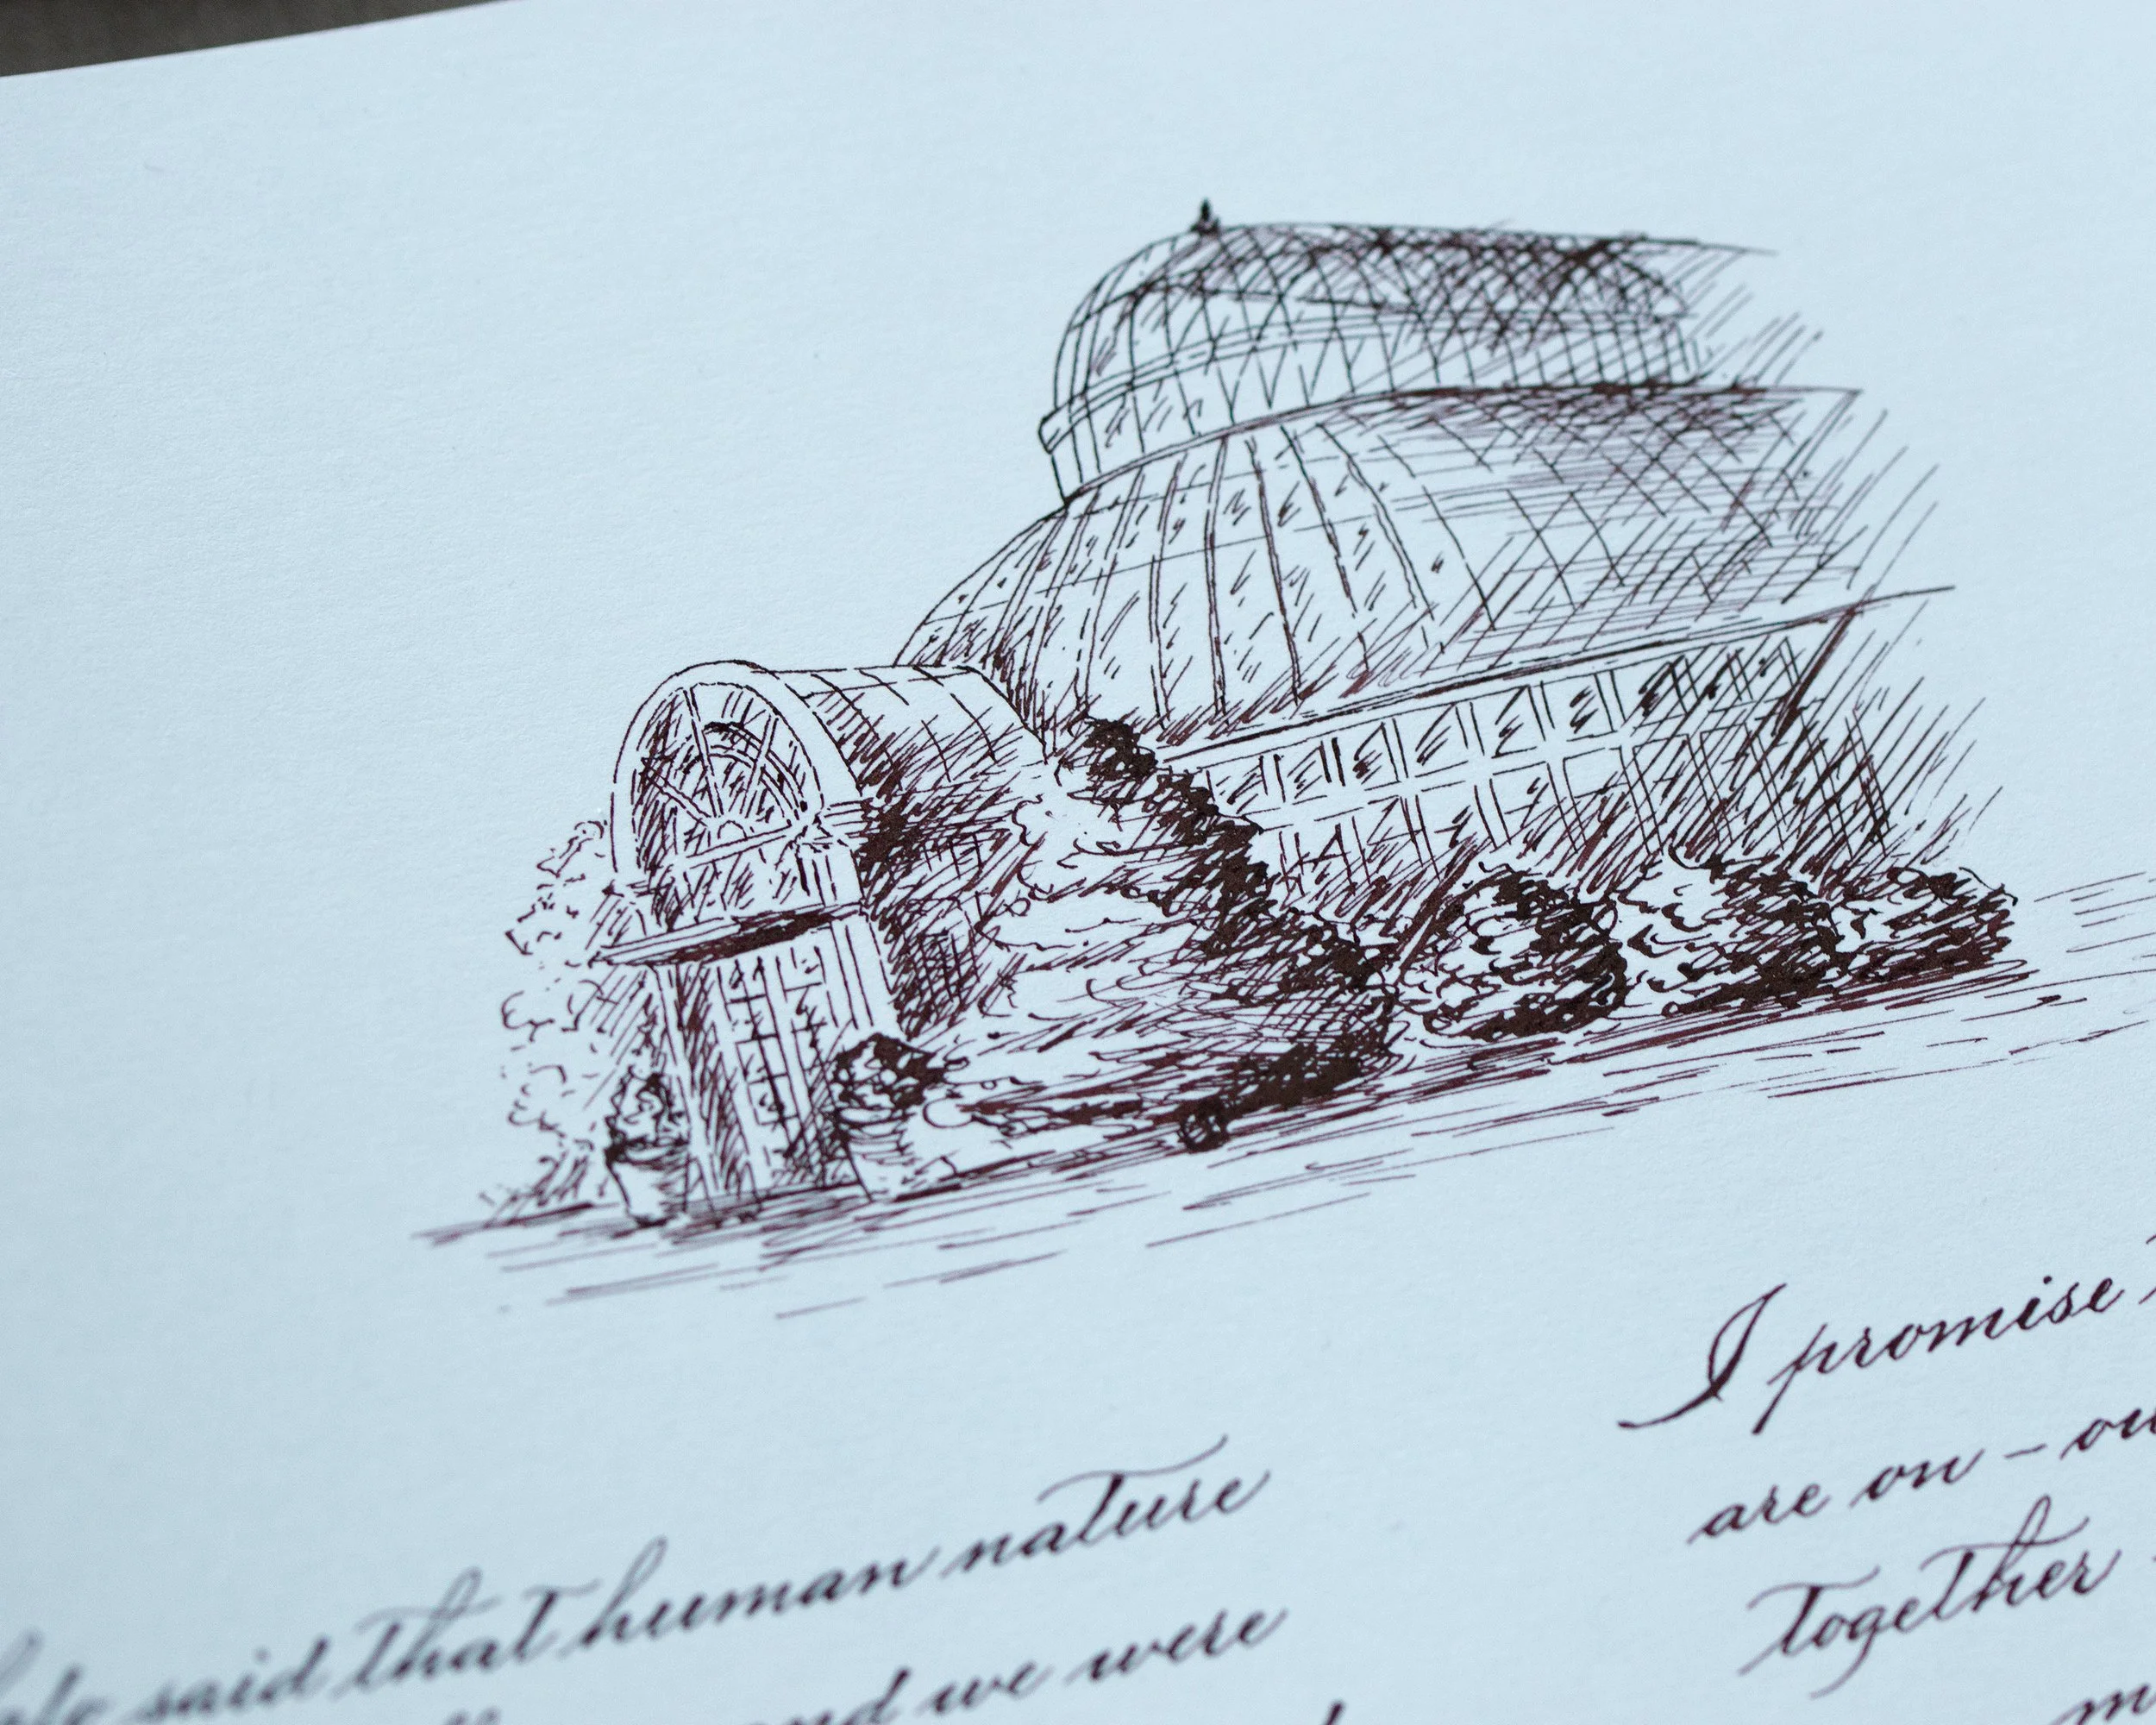 said that human nature
and we were
I promise
are on – ou
together
m